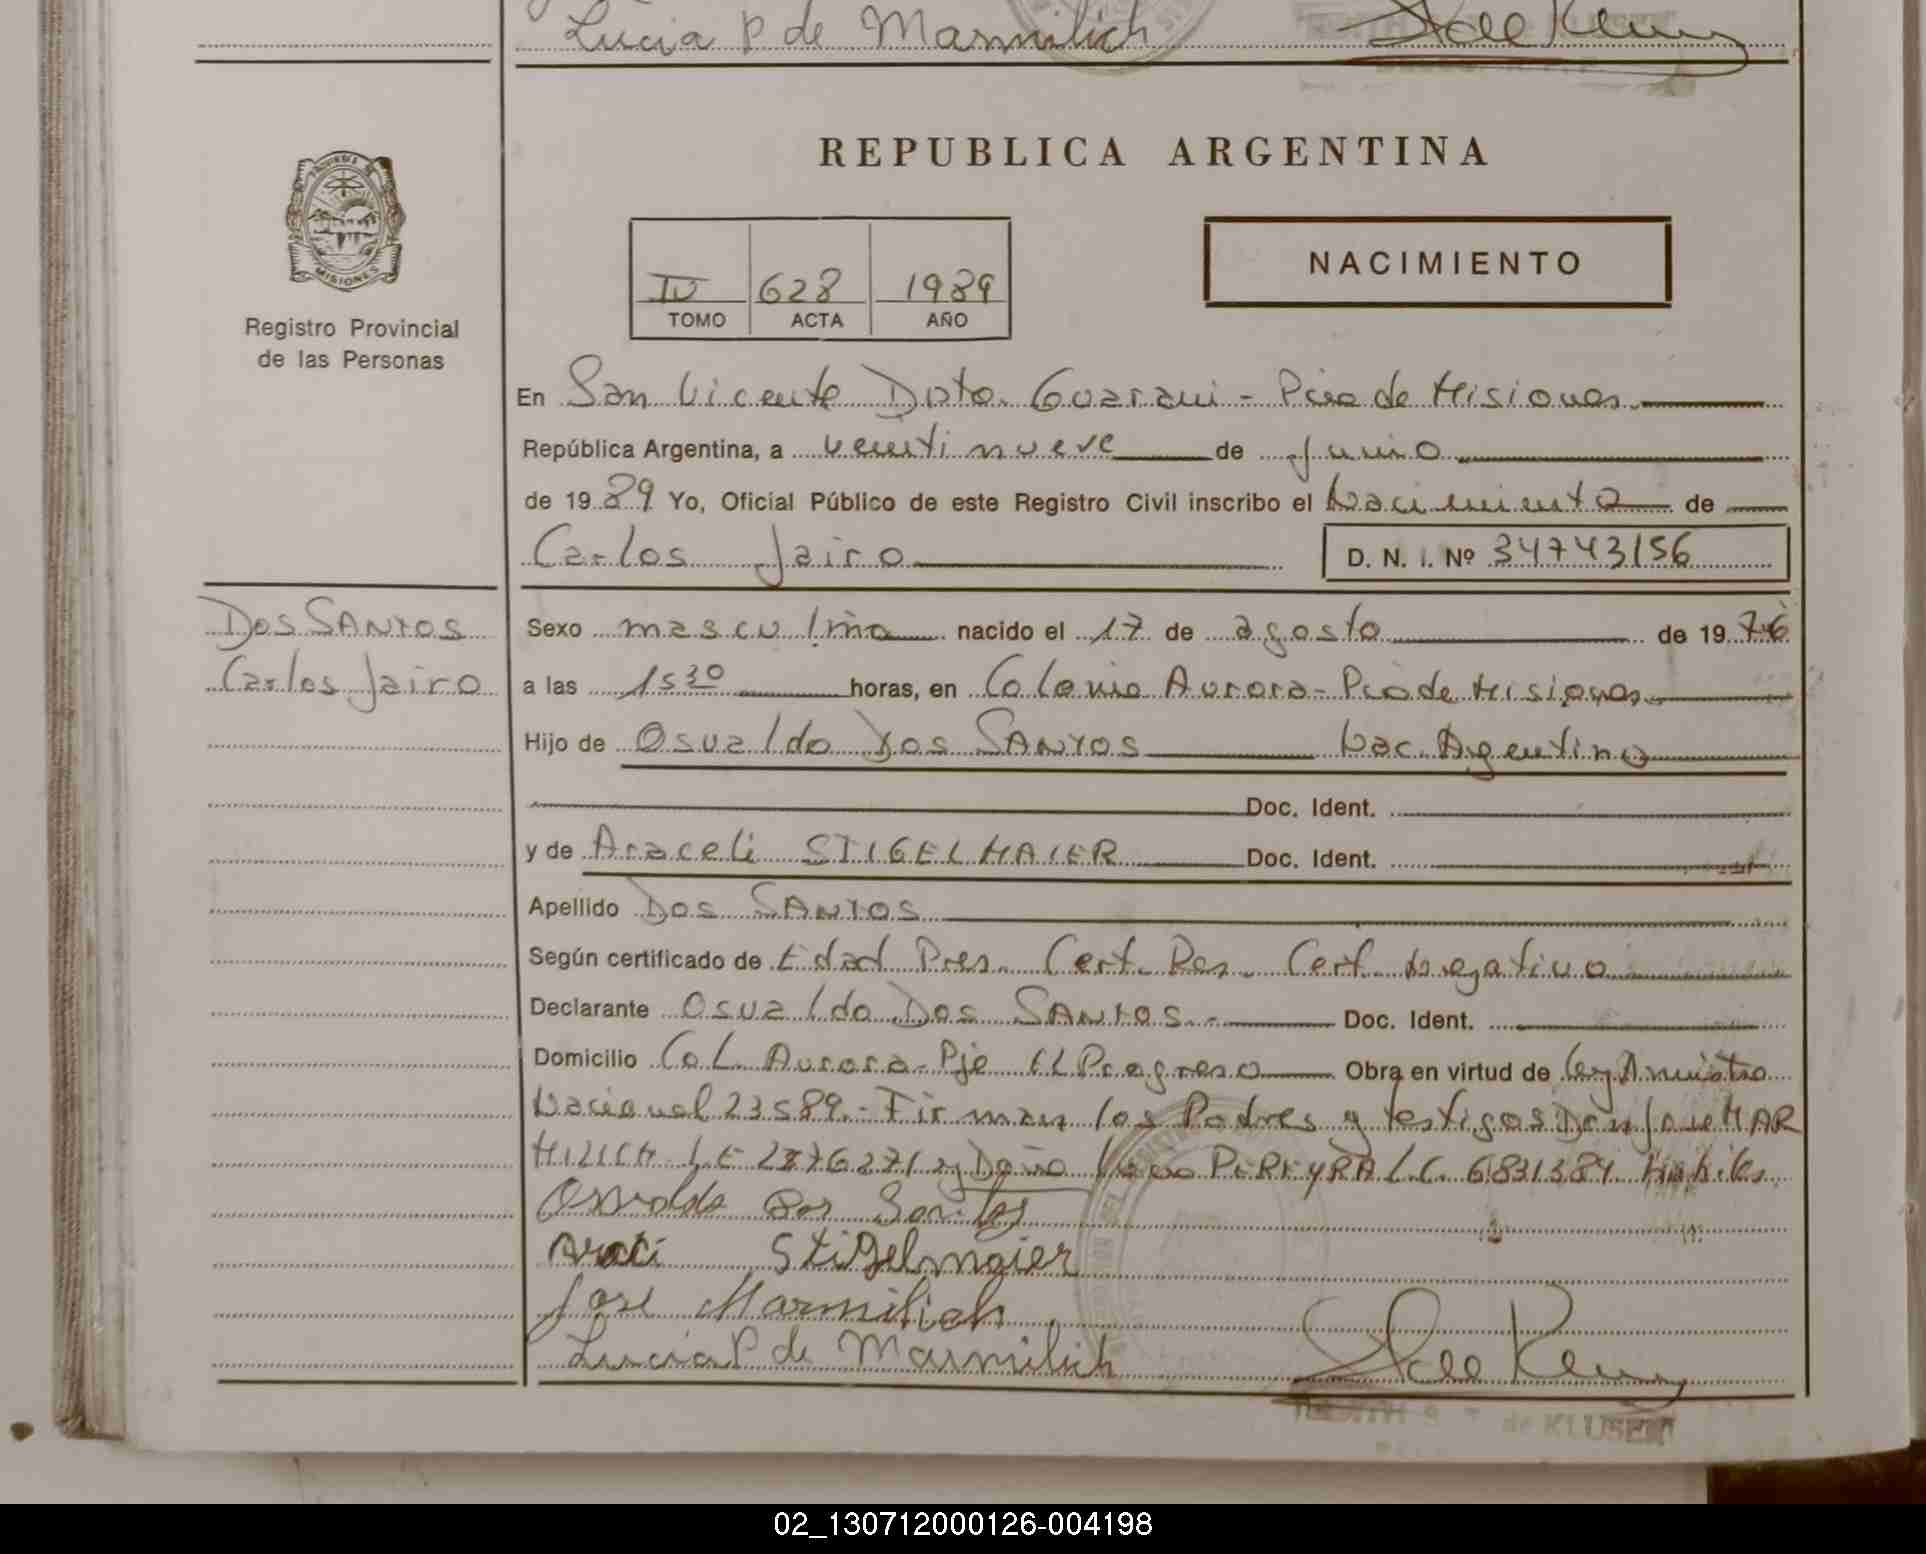 Lucia P de Marmilich
REPUBLICA ARGENTINA
PROVINCIA
MISIONES
Registro Provincial
de las Personas
IV 628 1989
TOMO ACTA AÑO
NACIMIENTO
En San Vicente Dpto. Guarani - Pcia de Misiones
República Argentina, a veintinueve de Junio
de 1989 Yo, Oficial Público de este Registro Civil inscribo el Nacimiento de
Carlos Jairo D. N. I. Nº 34743156
DOS SANTOS
Carlos Jairo
Sexo masculino nacido el 17 de agosto de 1976
a las 1530 horas, en Colonia Aurora - Pcia de Misiones
Hijo de Osvaldo DOS SANTOS Nac. Argentino
Doc. Ident.
y de Araceli STIGELMAIER Doc. Ident.
Apellido DOS SANTOS
Según certificado de Edad Pres. Cert. Res. Cert. Negativo
Declarante Osvaldo DOS SANTOS.- Doc. Ident.
Domicilio Col. Aurora - Pje El Progreso Obra en virtud de Ley Amnistia
Nacional 23589.- Firman los Padres y testigos Don Jose MAR
MILICH L.E y Doña PEREYRA L.C. 6831384 Habiles
Osvaldo Dos Santos
Stigelmaier
Jose Marmilich
Lucia P de Marmilich
de KLUSENER
02_130712000126-004198